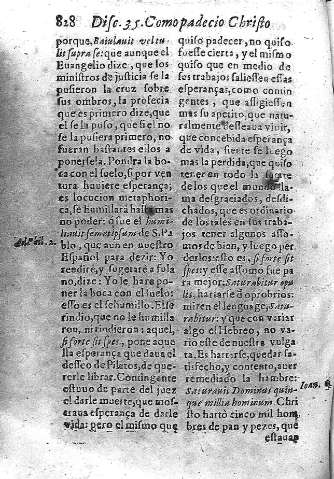 828 Disc. 35. Como padecio Christo
porque, Baiulauit vel tulit
supra se: que aunque el
Euangelio dize, que los
ministros de justicia se la
pusieron la cruz sobre
sus ombros, la profecia
que es primero dize, que
el se la puso, que si el no
se la pusiera primero, no
fueran bastantes ellos a
ponersela. Pondra la bo-
ca con el suelo, si por ven
tura huuiere esperança;
es locucion metaphori-
ca, se humillará hasta mas
no poder: ò fue el humi-
liauit semetipsum de S. Pa
blo, que aun en nuestro
Español para dezir: Yo
rendire, y sugetare a fula
no, dize: Yo le hare po-
ner la boca con el suelo:
esso es el humillo. Esse
rindio, que no le humilla
ron, ni rindieron: aquel,
si forte sit spes, pone aque
lla esperança que daua el
desseo de Pilatos, de que-
rerle librar. Contingente
estuuo de parte del juez
el darle muerte, que mos-
traua esperança de darle
vida: pero el mismo que
quiso padecer, no quiso
fuesse cierta, y el mismo
quiso que en medio de
los trabajos saliessen essas
esperanças, como contin
gentes, que afligiessen
mas su apetito, que natu-
ralmente desseaua viuir,
que concebida esperança
de vida, siente se luego
mas la perdida, que quiso
tener en todo la
de los que el mundo lla-
ma desgraciados, desdi-
chados, que es ordinario
de los tales en sus traba-
jos tener algunos asso-
mos de bien, y luego per
derlos: esso es, si forte sit
spes: y esse assomo fue pa
ra mejor, Saturabitur opro
brijs, hartarle à oprobrios:
miren el lenguage, Satu-
rabitur: y que con variar
algo el Hebreo, no va-
rio este de nuestra vulga
ta. Es hartarse, quedar sa-
tisfecho, y contento, auer
remediado la hambre:
Saturauit Dominus quin-
que millia hominum. Chri
sto hartò cinco mil hom
bres de pan y pezes, que
estauan
Ioan. 6.